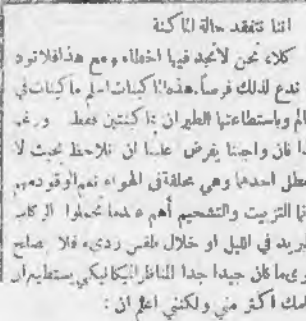 اننا نتفقد حالة الماكنة
كلاء نحن لانجد فيها اخطاء ومع هذا فلا نود
ندع لذلك فرصاً. هذه الماكينات اسلم ماكينات في
الم وباستطاعتها الطيران بماكينتين فقط ورغم
ذا فان واجبنا يفرض علينا ان نلاحظ بحيث لا
عطل احدها وهي محلقة في الهواء نعم الوقود مهم
التزييت والتشحيم أهم عندما تحملوا الركاب
بريد في الليل او خلال طقس رديء فلا يصلح
مهما كان جيدا جدا المناظر الميكانيكي يستطيع ان
امك أكثر مني ولكنني اعلم ان :